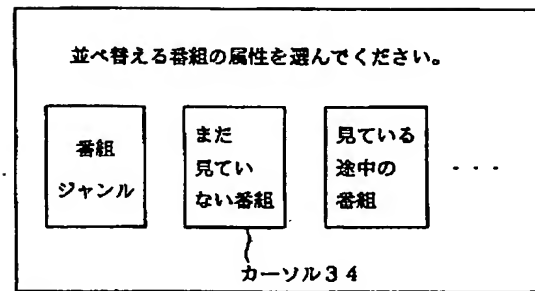 並べ替える番組の属性を選んでください。
番組
ジャンル
まだ
見てい
ない番組
見ている
途中の
番組
・・・
カーソル３４